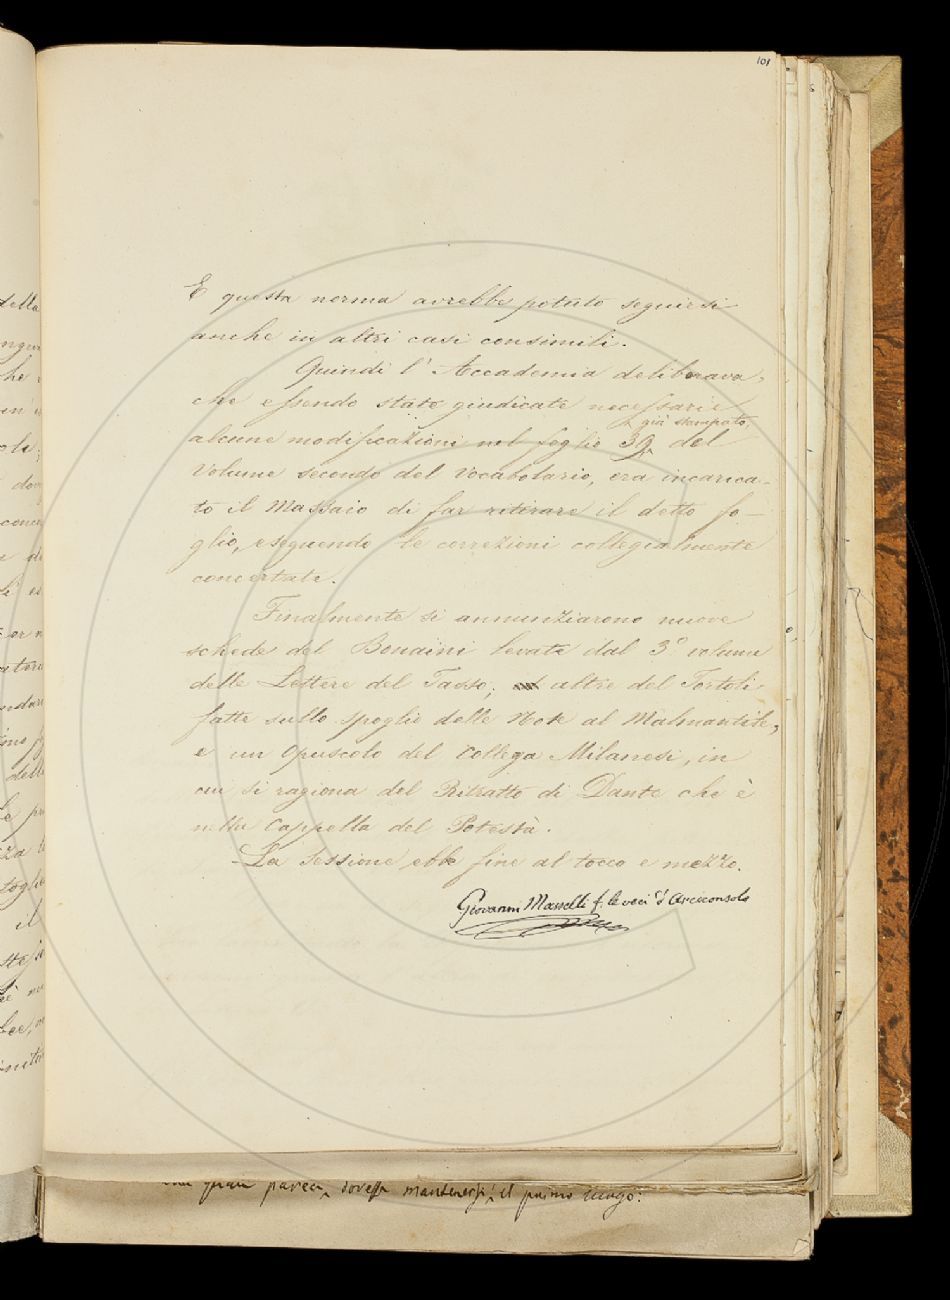 101
E questa norma avrebbe potuto seguirsi
anche in altri casi consimili.
Quindi l' Accademia deliberava,
che essendo state giudicate necessarie
già stampato,
alcune modificazioni nel foglio 39 del
Volume secondo del Vocabolario, era incarica-
to il Massaio di far ritirare il detto fo-
glio, eseguendo le correzioni collegialmente
concertate.
Finalmente si annunziarono nuove
schede del Bonaini levate dal 3° volume
delle Lettere del Tasso; altre del Tortoli
fatte sullo spoglio delle Note al Malmantile,
e un Opuscolo del Collega Milanesi, in
cui si ragiona del Ritratto di Dante che è
nella Cappella del Potestà.
La Sessione ebbe fine al tocco e mezzo.
Giovanni Masselli f. le veci d'Arciconsolo
parea, dovesse mantenersi il primo luogo: